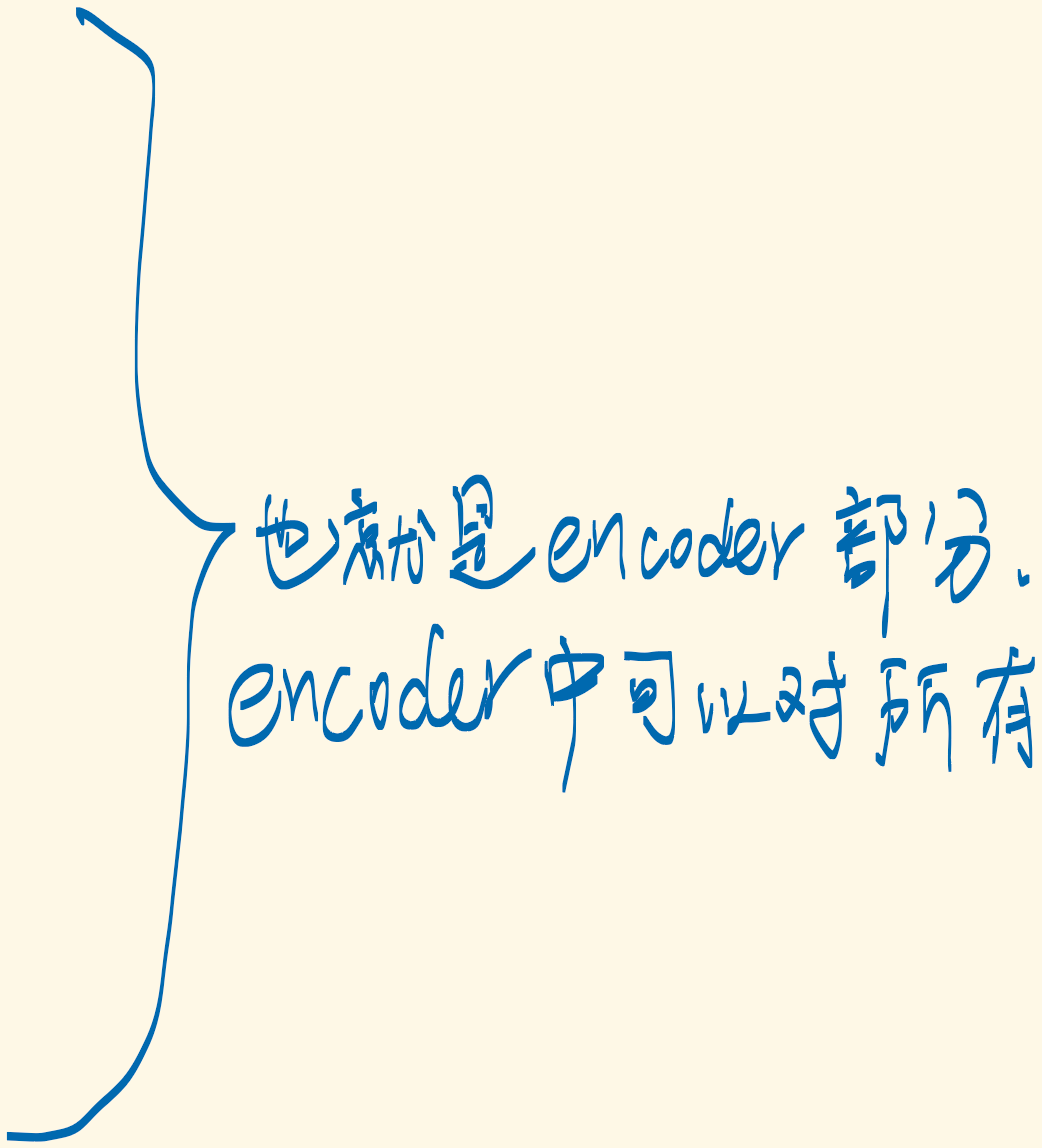 也就是encoder部分.
encoder中可以对所有